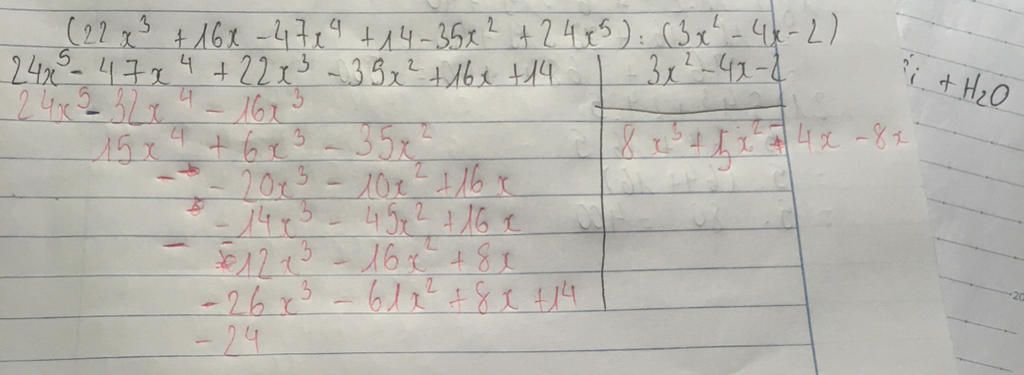 (22x³ + 16x - 47x⁴ + 14 - 35x² + 24x⁵) : (3x² - 4x - 2)
24x⁵ - 47x⁴ + 22x³ - 35x² + 16x + 14 | 3x² - 4x - 2
+ H₂O
24x⁵ - 32x⁴ - 16x³
15x⁴ + 6x³ - 35x² | 8x³ + 5x² - 4x - 8x
- 20x³ - 10x² + 16x
- 14x³ - 45x² + 16x
- 12x³ - 16x² + 8x
- 26x³ - 61x² + 8x + 14
- 24